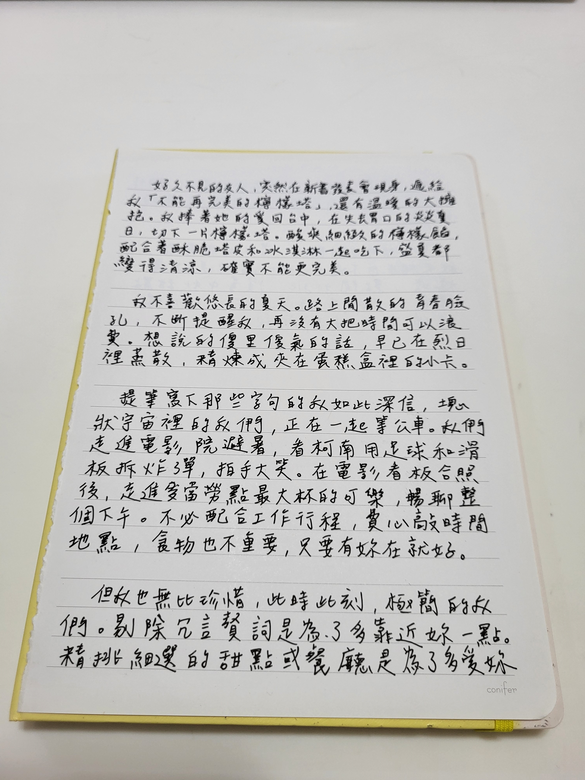 好久不見的友人,突然在新書發表會現身,遞給
我「不能再完美的檸檬塔」,還有溫暖的大擁
抱。我捧著她的愛回台中,在失去胃口的炎炎夏
日,切下一片檸檬塔。酸爽細緻的檸檬餡,
配合著酥脆塔皮和冰淇淋一起吃下,盛夏都
變得清涼,確實不能更完美。
我不喜歡悠長的夏天。路上閒散的青春臉
孔,不斷提醒我,再沒有大把時間可以浪
費。想說的傻里傻氣的話,早已在烈日
裡蒸散,精煉成夾在蛋糕盒裡的小卡。
提筆寫下那些字句的我如此深信,塊
狀宇宙裡的我們,正在一起等公車。我們
走進電影院避暑,看柯南用足球和滑
板拆炸彈,拍手大笑。在電影看板合照
後,走進麥當勞點最大杯的可樂,暢聊整
個下午。不必配合工作行程,費心敲時間
地點,食物也不重要,只要有妳在就好。
但我也無比珍惜,此時此刻,極簡的我
們。剔除冗言贅詞是為了多靠近妳一點。
精挑細選的甜點或餐廳是為了多愛妳
conifer